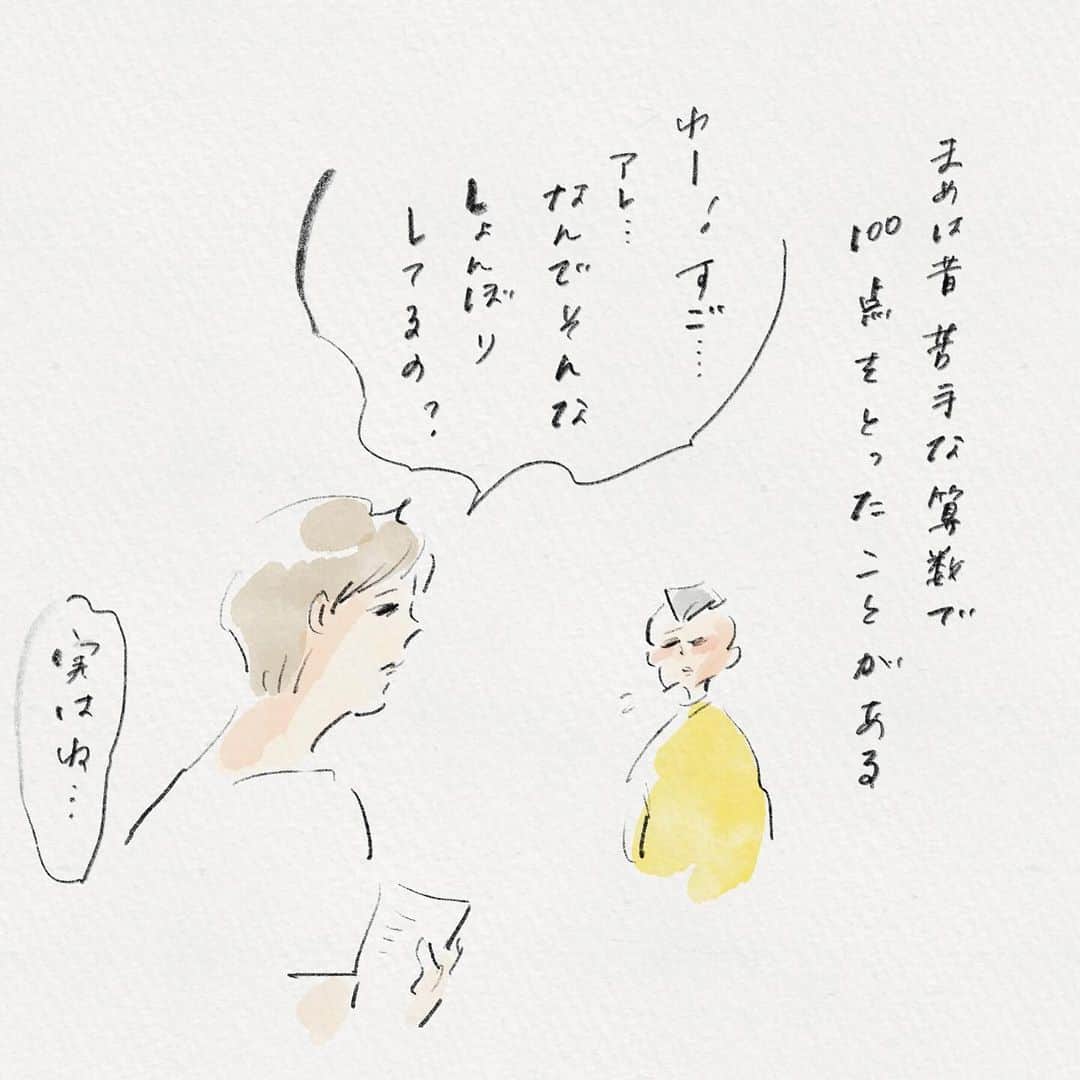 まめは昔 苦手な算数で
100点をとったことがある
わー！すご……
アレ…
なんでそんな
しょんぼり
してるの？
実はね…